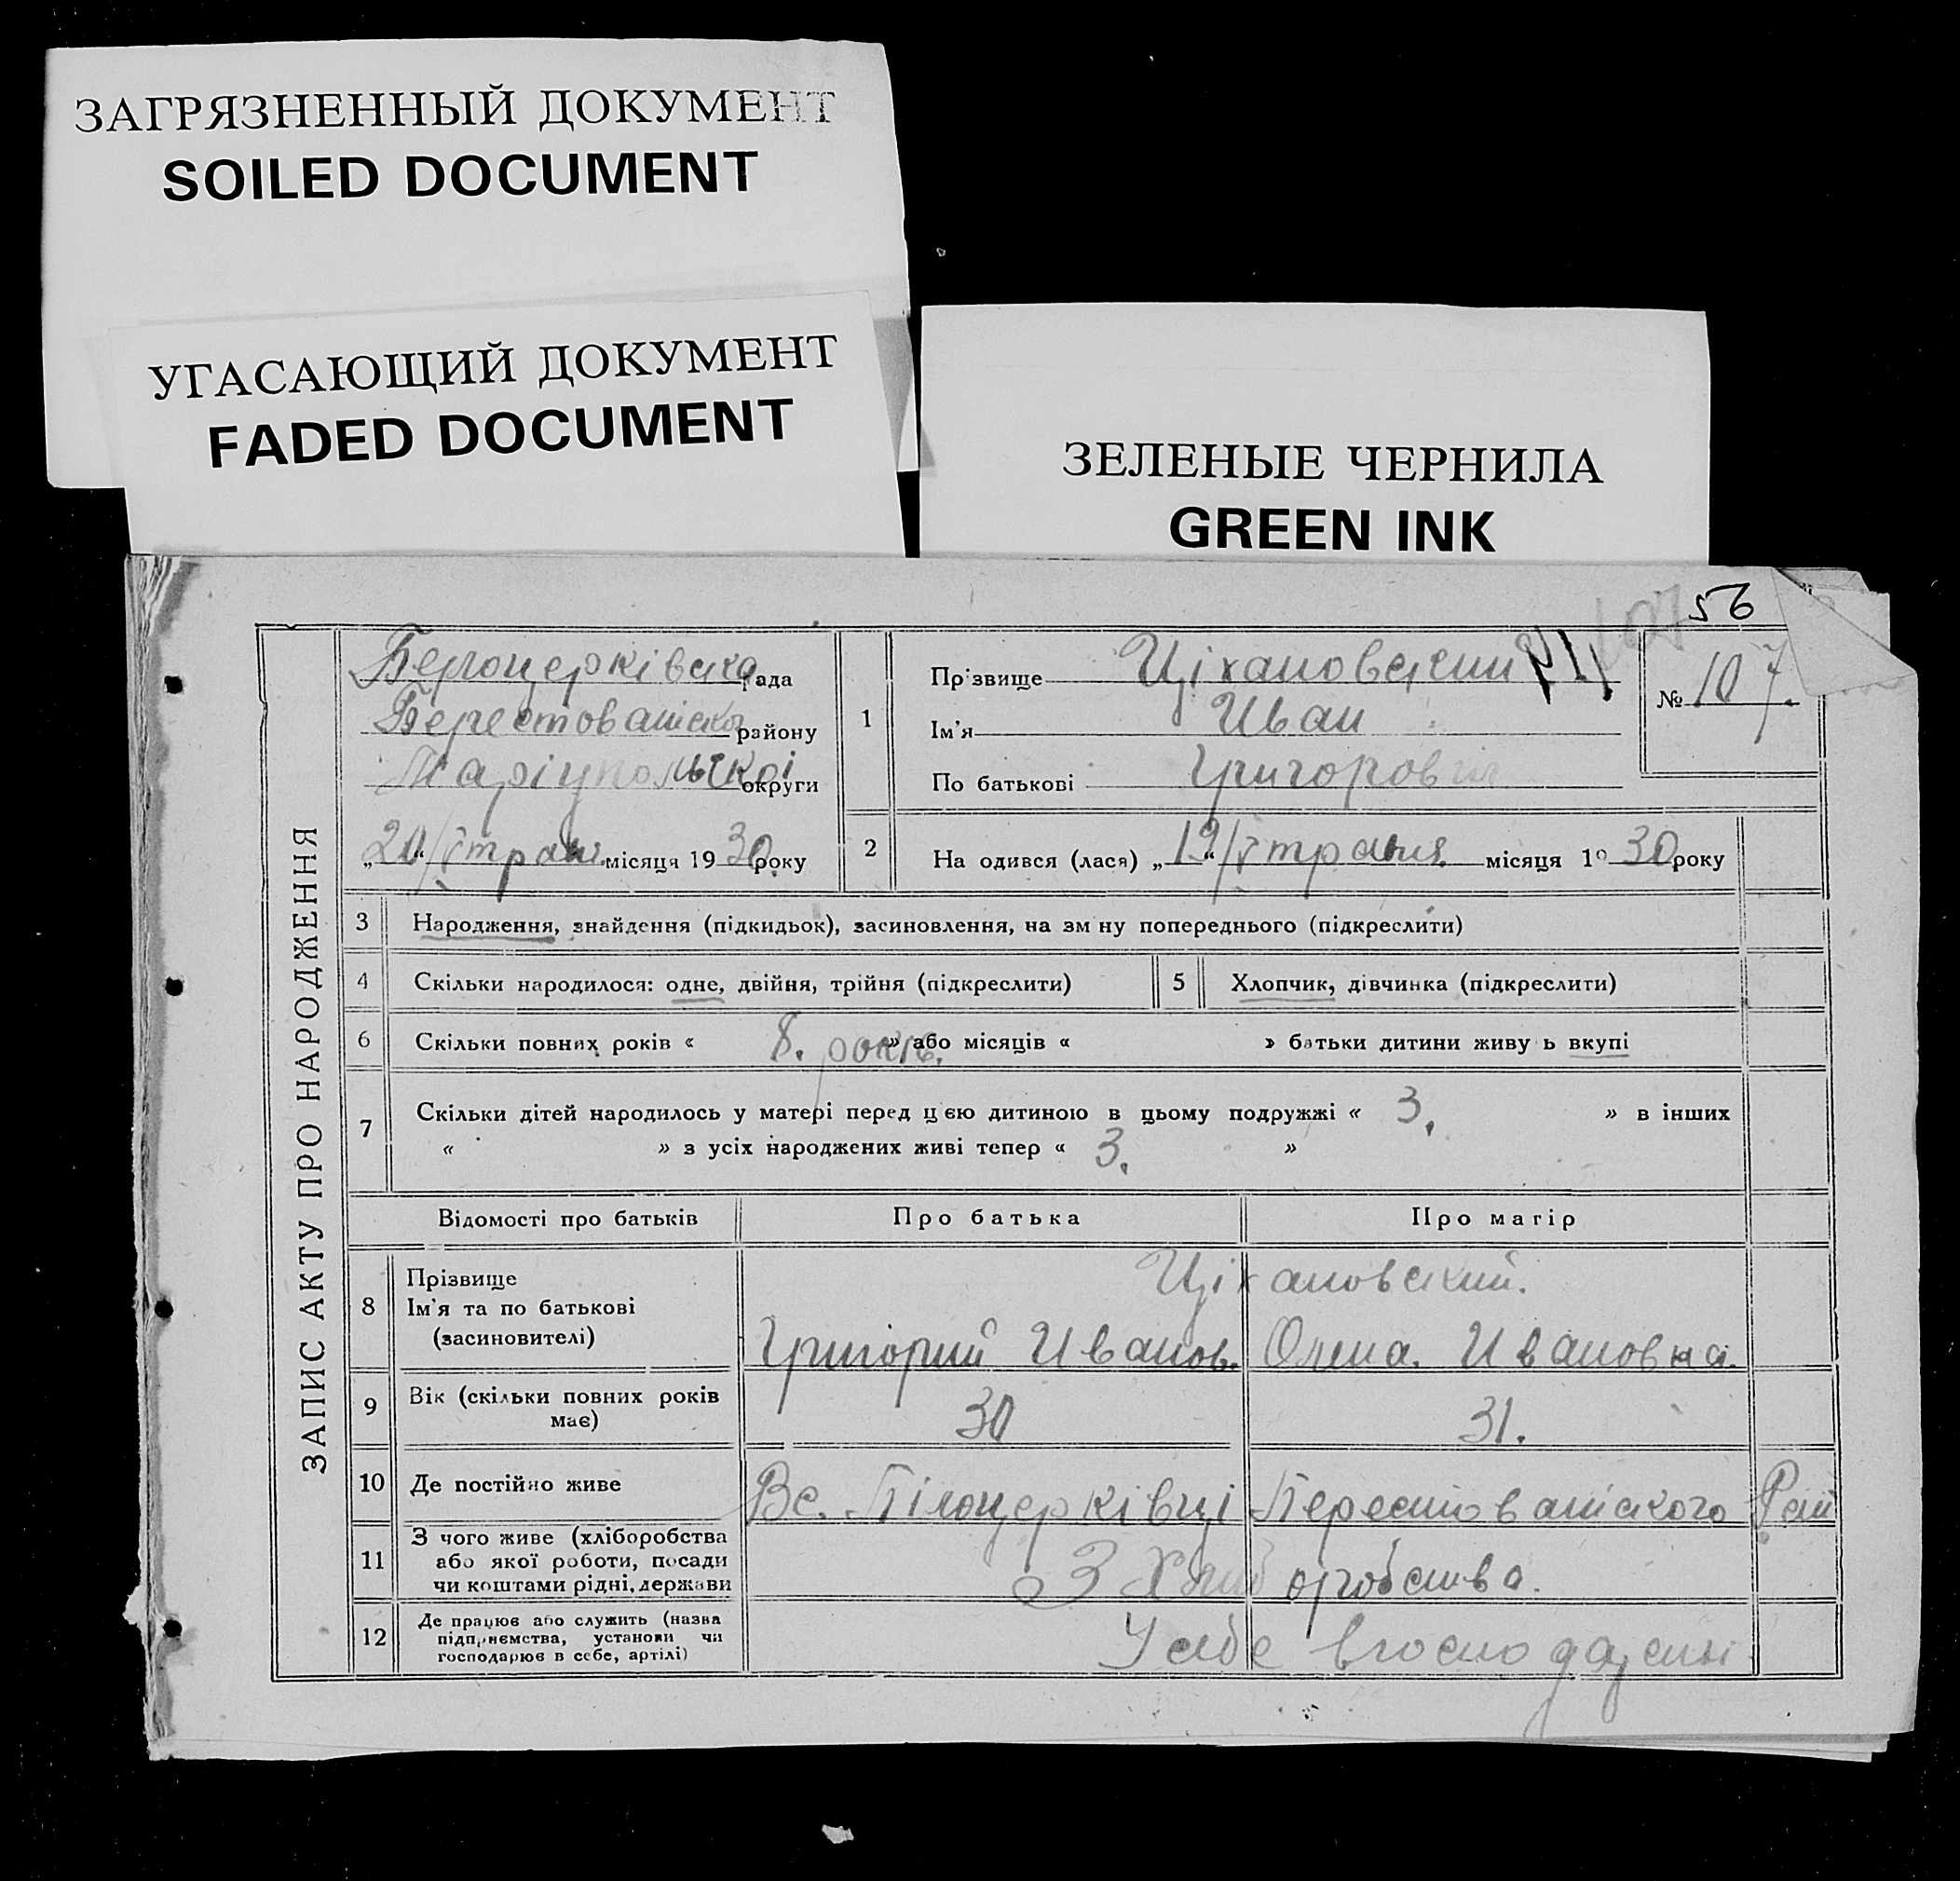 ЗАГРЯЗНЕННЫЙ ДОКУМЕНТ
SOILED DOCUMENT
УГАСАЮЩИЙ ДОКУМЕНТ
FADED DOCUMENT
ЗЕЛЕНЫЕ ЧЕРНИЛА
GREEN INK
56
107
ЗАПИС АКТУ ПРО НАРОДЖЕННЯ
Белоцерківська рада
району
Маріупольскоі округи
„20“/V трав. місяця 1930 року
1
Прізвище Ціхановский
Ім'я Иван
По батькові Григорович
№ 107.
2 На одився (лася) „19“/V травня місяця 1930 року
3 Народження, знайдення (підкидьок), засиновлення, на зм ну попереднього (підкреслити)
4 Скільки народилося: одне, двійня, трійня (підкреслити) 5 Хлопчик, дівчинка (підкреслити)
6 Скільки повних років « 8. років. » або місяців « » батьки дитини живу ь вкупі
7 Скільки дітей народилось у матері перед ц єю дитиною в цьому подружжі « 3. » в інших
« » з усіх народжених живі тепер « 3. »
Відомості про батьків Про батька Про матір
8 Прізвище Ціхановский.
Ім'я та по батькові
(засиновителі) Григорий Иванов. Олена. Ивановна.
9 Вік (скільки повних років
має) 30 31.
10 Де постійно живе Вс. Білоцерківці Берестованского
11 З чого живе (хліборобства
або якої роботи, посади
чи коштами рідні, держави З Хліборобства.
12 Де працює або служить (назва
підприємства, установи чи
господарює в себе, артілі) У себе